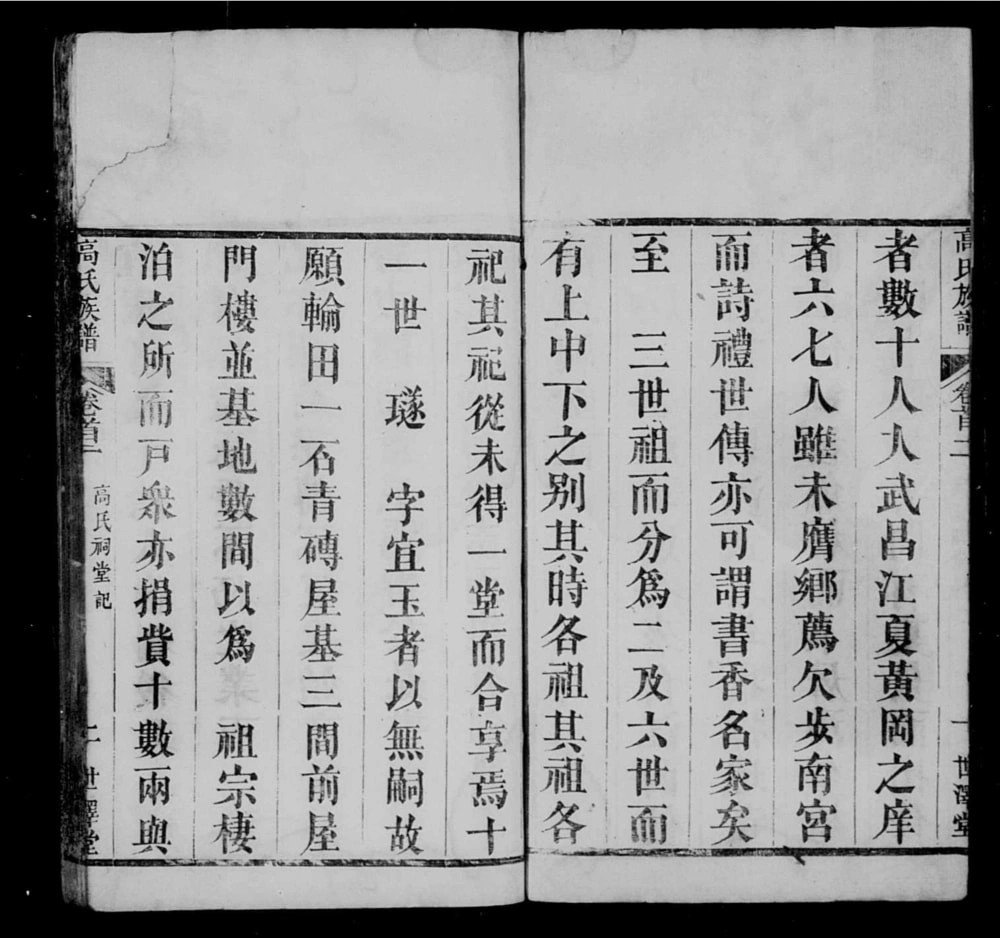 高氏族譜
卷首二
一
世澤堂
者數十人人武昌江夏黃岡之庠
者六七人雖未膺鄉薦欠步南宮
而詩禮世傳亦可謂書香名家矣
至 三世祖而分爲二及六世而
有上中下之別其時各祖其祖各
祀其祀從未得一堂而合享焉十
一世 璲 字宜玉者以無嗣故
願輪田一石青磚屋基三間前屋
門樓並基地數間以爲 祖宗棲
泊之所而戸衆亦捐貲十數兩與
高氏族譜
卷首二
高氏祠堂記
二
世澤堂